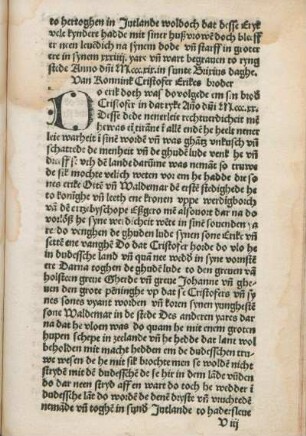 to hertoghen in Jutlande woldoch dat desse Eryk
vele kyndere hadde mit siner hußvrowē doch bleff
er nen leuēdich na synem dode vn̄ starff in groter
ere in synem xxxiiij. yare vn̄ wart begrauen to ryng
stede Anno dn̄i M.cccc.xix. in sunte Brixius daghe.
Van Konnink Cristoffer Erikes broder
Do erik doth was do volgede em syn brod̕
Cristofer in dat ryke Año dn̄i M.ccc.xx.
Desse dede nenerleie rechtuerdicheit mē
he was eī tirāne ī allē endē he heelt nener
leie warheit ī sine wordē vn̄ was ghātz vnkusch vn̄
schattede de menheit vn̄ de ghudē lude venk he vn̄
dreff se vth dē lande darūme was nemāt so truwe
de sik mochte velich weten vor em he hadde dre so
nes erike Otte vn̄ Waldemar dē erstē stedighede he
to konighe vn̄ leeth ene kronen vppe werdigborch
vā dē ertzbyschope Eßgero mē alsouort dar na do
vorlosß he syne werdicheit weder in sine iouende a
re do venghen de ghuden lude synen sone Erik vn̄
settē ene vanghē Do dat Cristofer horde do vlo he
in dudessche land vn̄ quā nee wedd̕ in syne vorinstē
ere Darna toghen de ghudē lude to den greuen vā
holstein greue Gherde vn̄ greue Johanne vn̄ ghe
uen den grote pēninghe vp dat se Cristofers vn̄ sy
nes sones vyant worden vn̄ koren synen yunghestē
sone Waldemar in de stede Des anderen yares dar
na dat he vloen was do quam he mit enem groten
hupen schepe in zeelande vn̄ he hedde dat lant wol
beholden mit macht hedden em de dudesschen tru
we wesen de he mit sik brochte men se woldē nicht
strydē mit dē dudesschē de se hir in dem lāde vūden
do dar nen stryd aff en wart do toch he wedder ī
dudessche lāt do wordē de denē dryste vn̄ vruchtedē
nemāde vn̄ toghē in synd̕ Jutlande to haderßleue
V iij